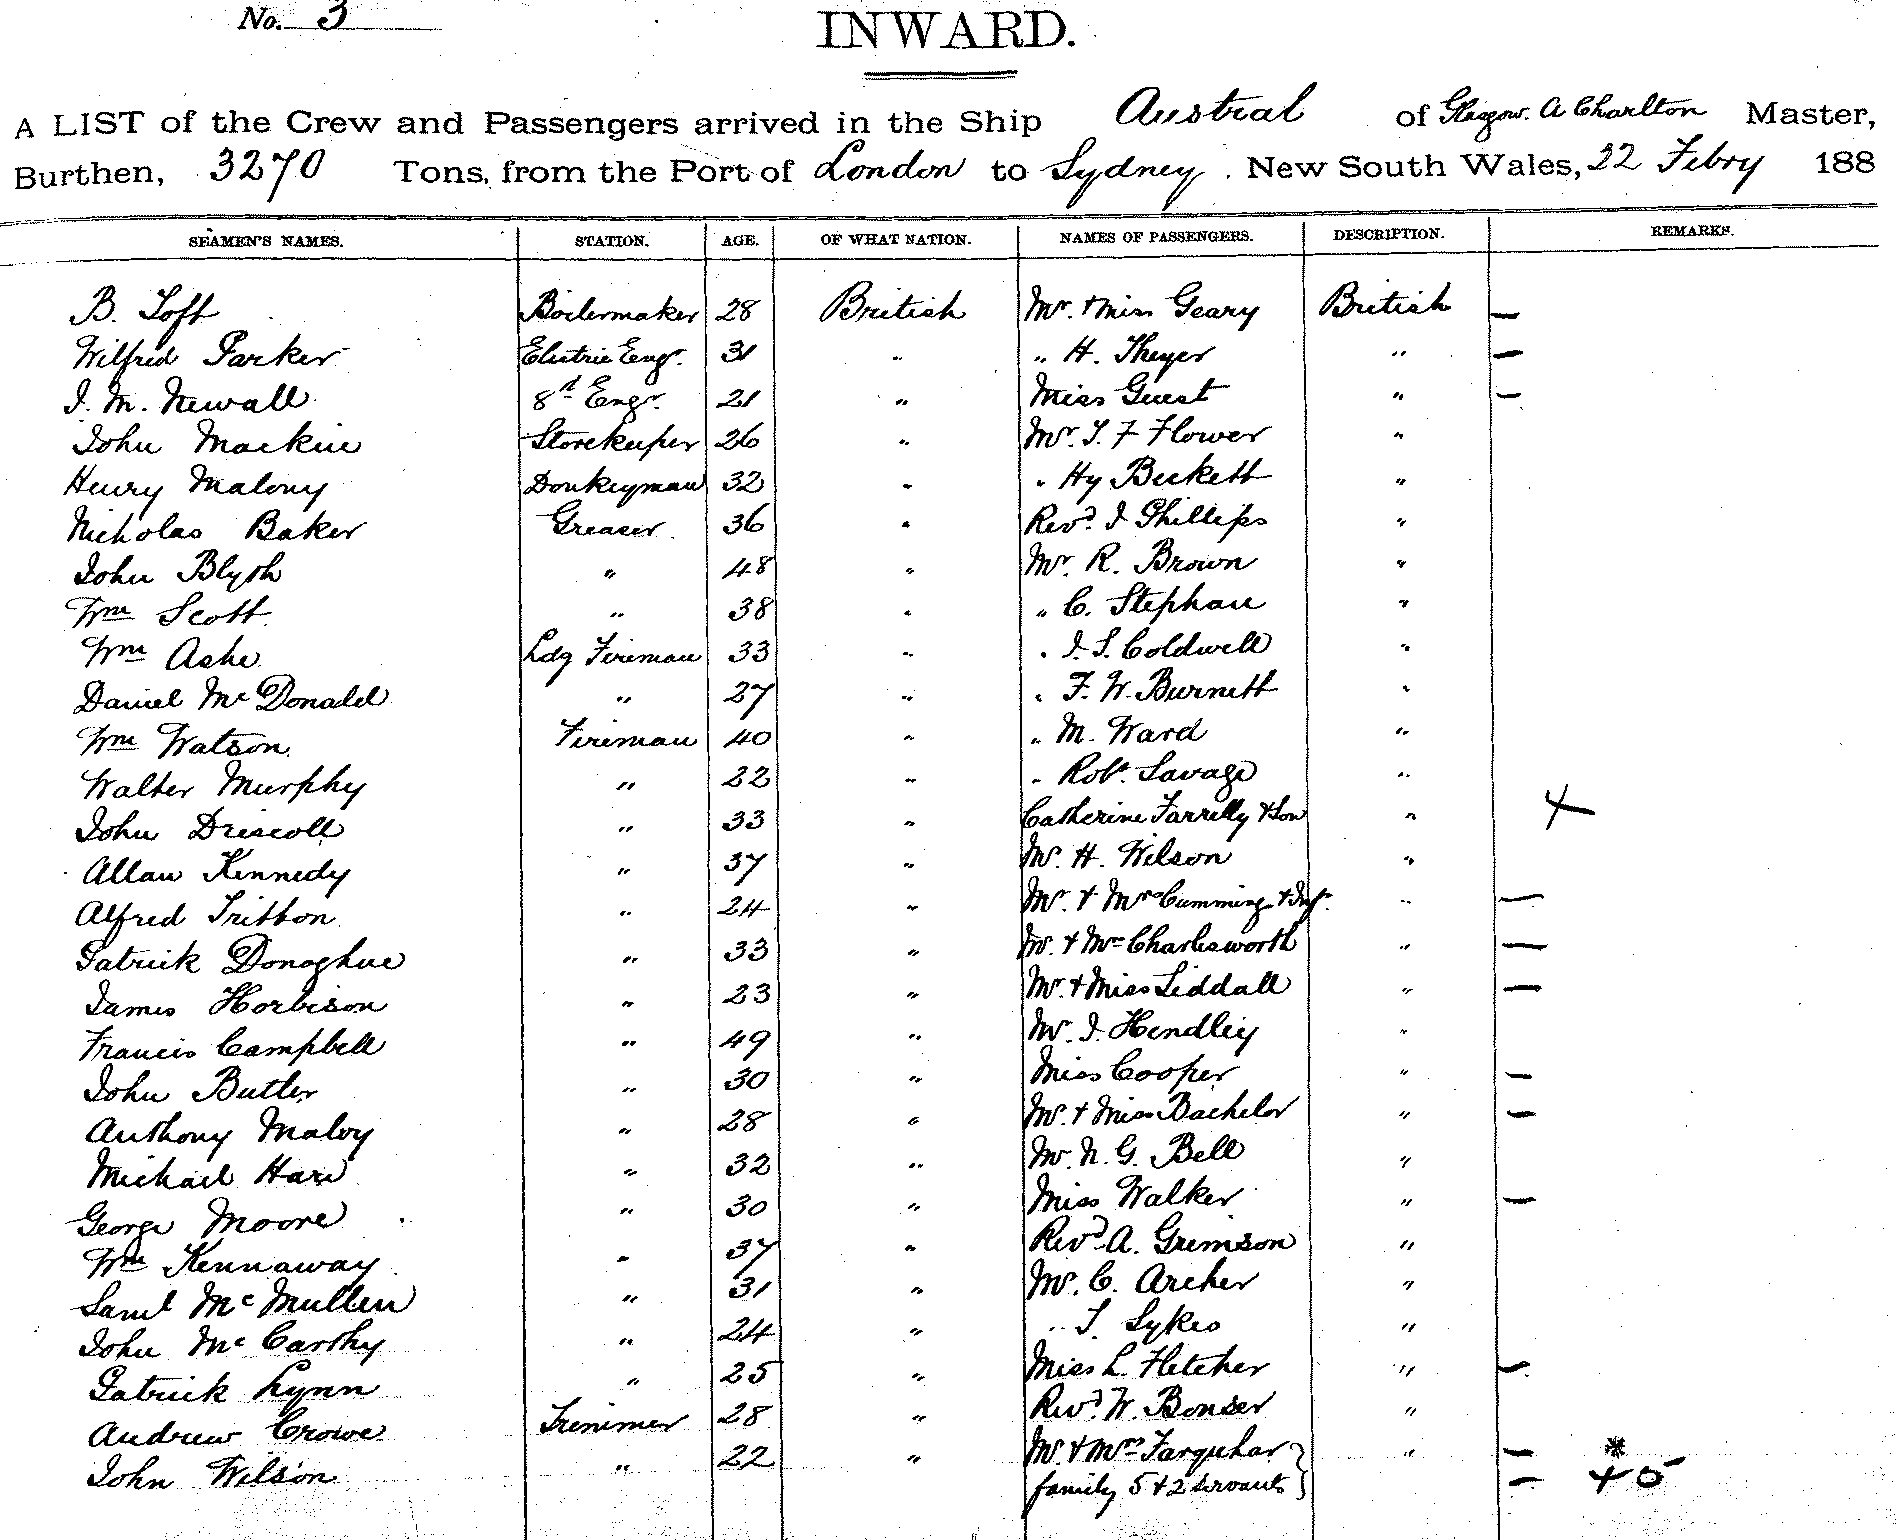 No. 3
INWARD.
A LIST of the Crew and Passengers arrived in the Ship Austral of Glasgow. A Charlton Master,
Burthen, 3270 Tons, from the Port of London to Sydney. New South Wales, 22 Febry 188
SEAMEN'S NAMES. STATION. AGE. OF WHAT NATION. NAMES OF PASSENGERS. DESCRIPTION. REMARKS.
B. Toft Boilermaker 28 British Mr. & Miss Geary British —
Wilfred Parker Electric Engr. 31 " " H. Theyer " —
J. M. Newall 8th Engr. 21 " Miss Guest " —
John Mackie Storekeeper 26 " Mr. T. F Flower "
Henry Malony Donkeyman 32 " " Hy Beckett "
Nicholas Baker Greaser 36 " Revd. J Phillips "
John Blyth " 48 " Mr. R. Brown "
Wm Scott " 38 " " C. Stephan "
Wm Ashe Ldg Fireman 33 " " J. S. Coldwell "
Daniel McDonald " 27 " " F. W. Burnett "
Wm Watson Fireman 40 " " M. Ward "
Walter Murphy " 22 " " Robt. Savage "
John Driscoll " 33 " Catherine Farrelly & Son " +
Allan Kennedy " 37 " Mr. H. Wilson "
Alfred Tribbon " 24 " Mr. & Mrs Cumming & Inft. " —
Patrick Donoghue " 33 " Mr. & Mrs Charlesworth " —
James Horbison " 23 " Mr. & Miss Liddall " —
Francis Campbell " 49 " Mr. J. Hendley "
John Butler " 30 " Miss Cooper " —
Anthony Maloy " 28 " Mr. & Miss Bachelor " —
Michael Haw " 32 " Mr. N. G. Bell "
George Moore " 30 " Miss Walker " —
Wm Kennaway " 37 " Revd. A. Grimson "
Saml McMullen " 31 " Mr. C. Archer "
John McCarthy " 24 " " T. Sykes "
Patrick Lynn " 25 " Miss L. Fletcher " —
Andrew Crowe Trimmer 28 " Revd. W. Bonser "
John Wilson " 22 " Mr & Mrs Farquhar " — *
family 5 & 2 servants — + 5